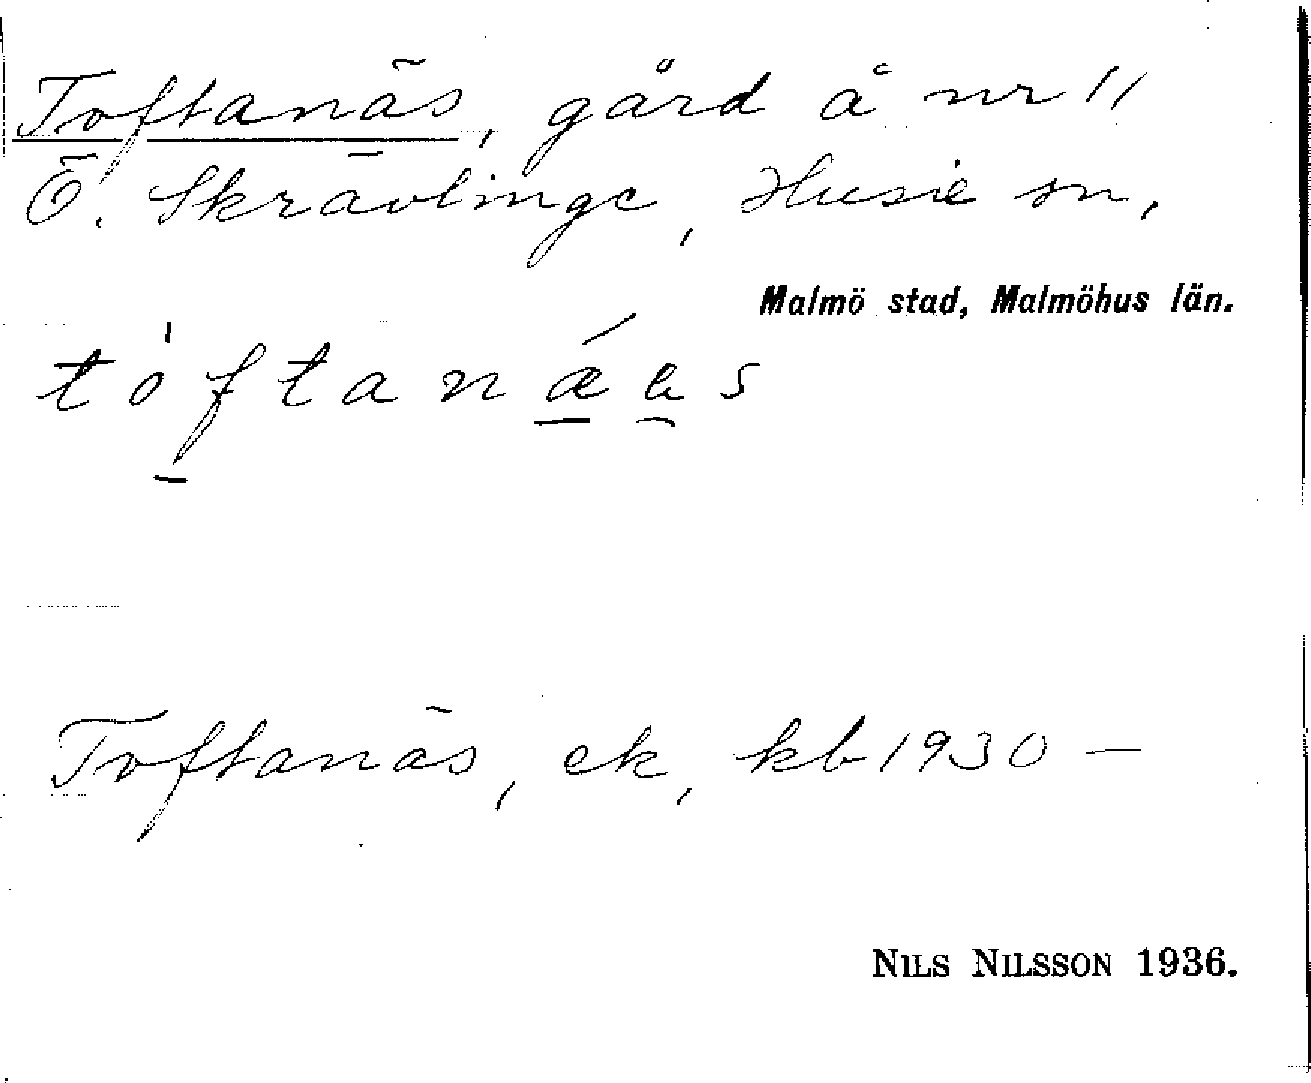 Toftanäs, gård å nr 11
Ö. Skrävlinge, Husie sn,
Malmö stad, Malmöhus län.
tóftanǽas
Toftanäs, ek, kb 1930 —
NILS NILSSON 1936.